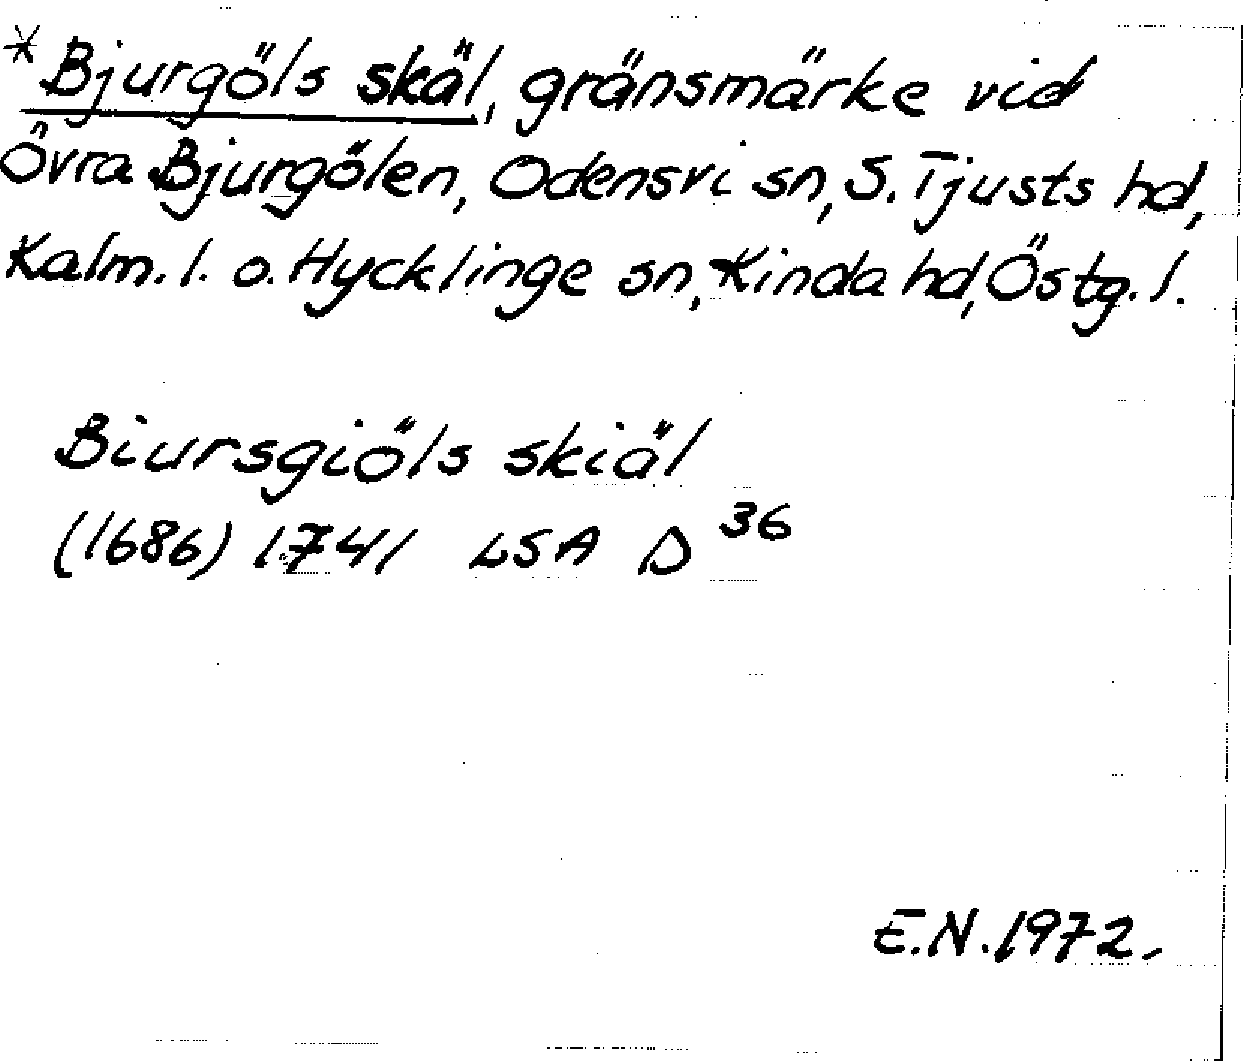 *Bjurgöls skäl, gränsmärke vid
Övra Bjurgölen, Odensvi sn, S. Tjusts hd,
Kalm. l. o. Hycklinge sn, Kinda hd, Östg. l.
Biursgiöls skiäl
(1686) 1741 LSA D 36
E.N. 1972.